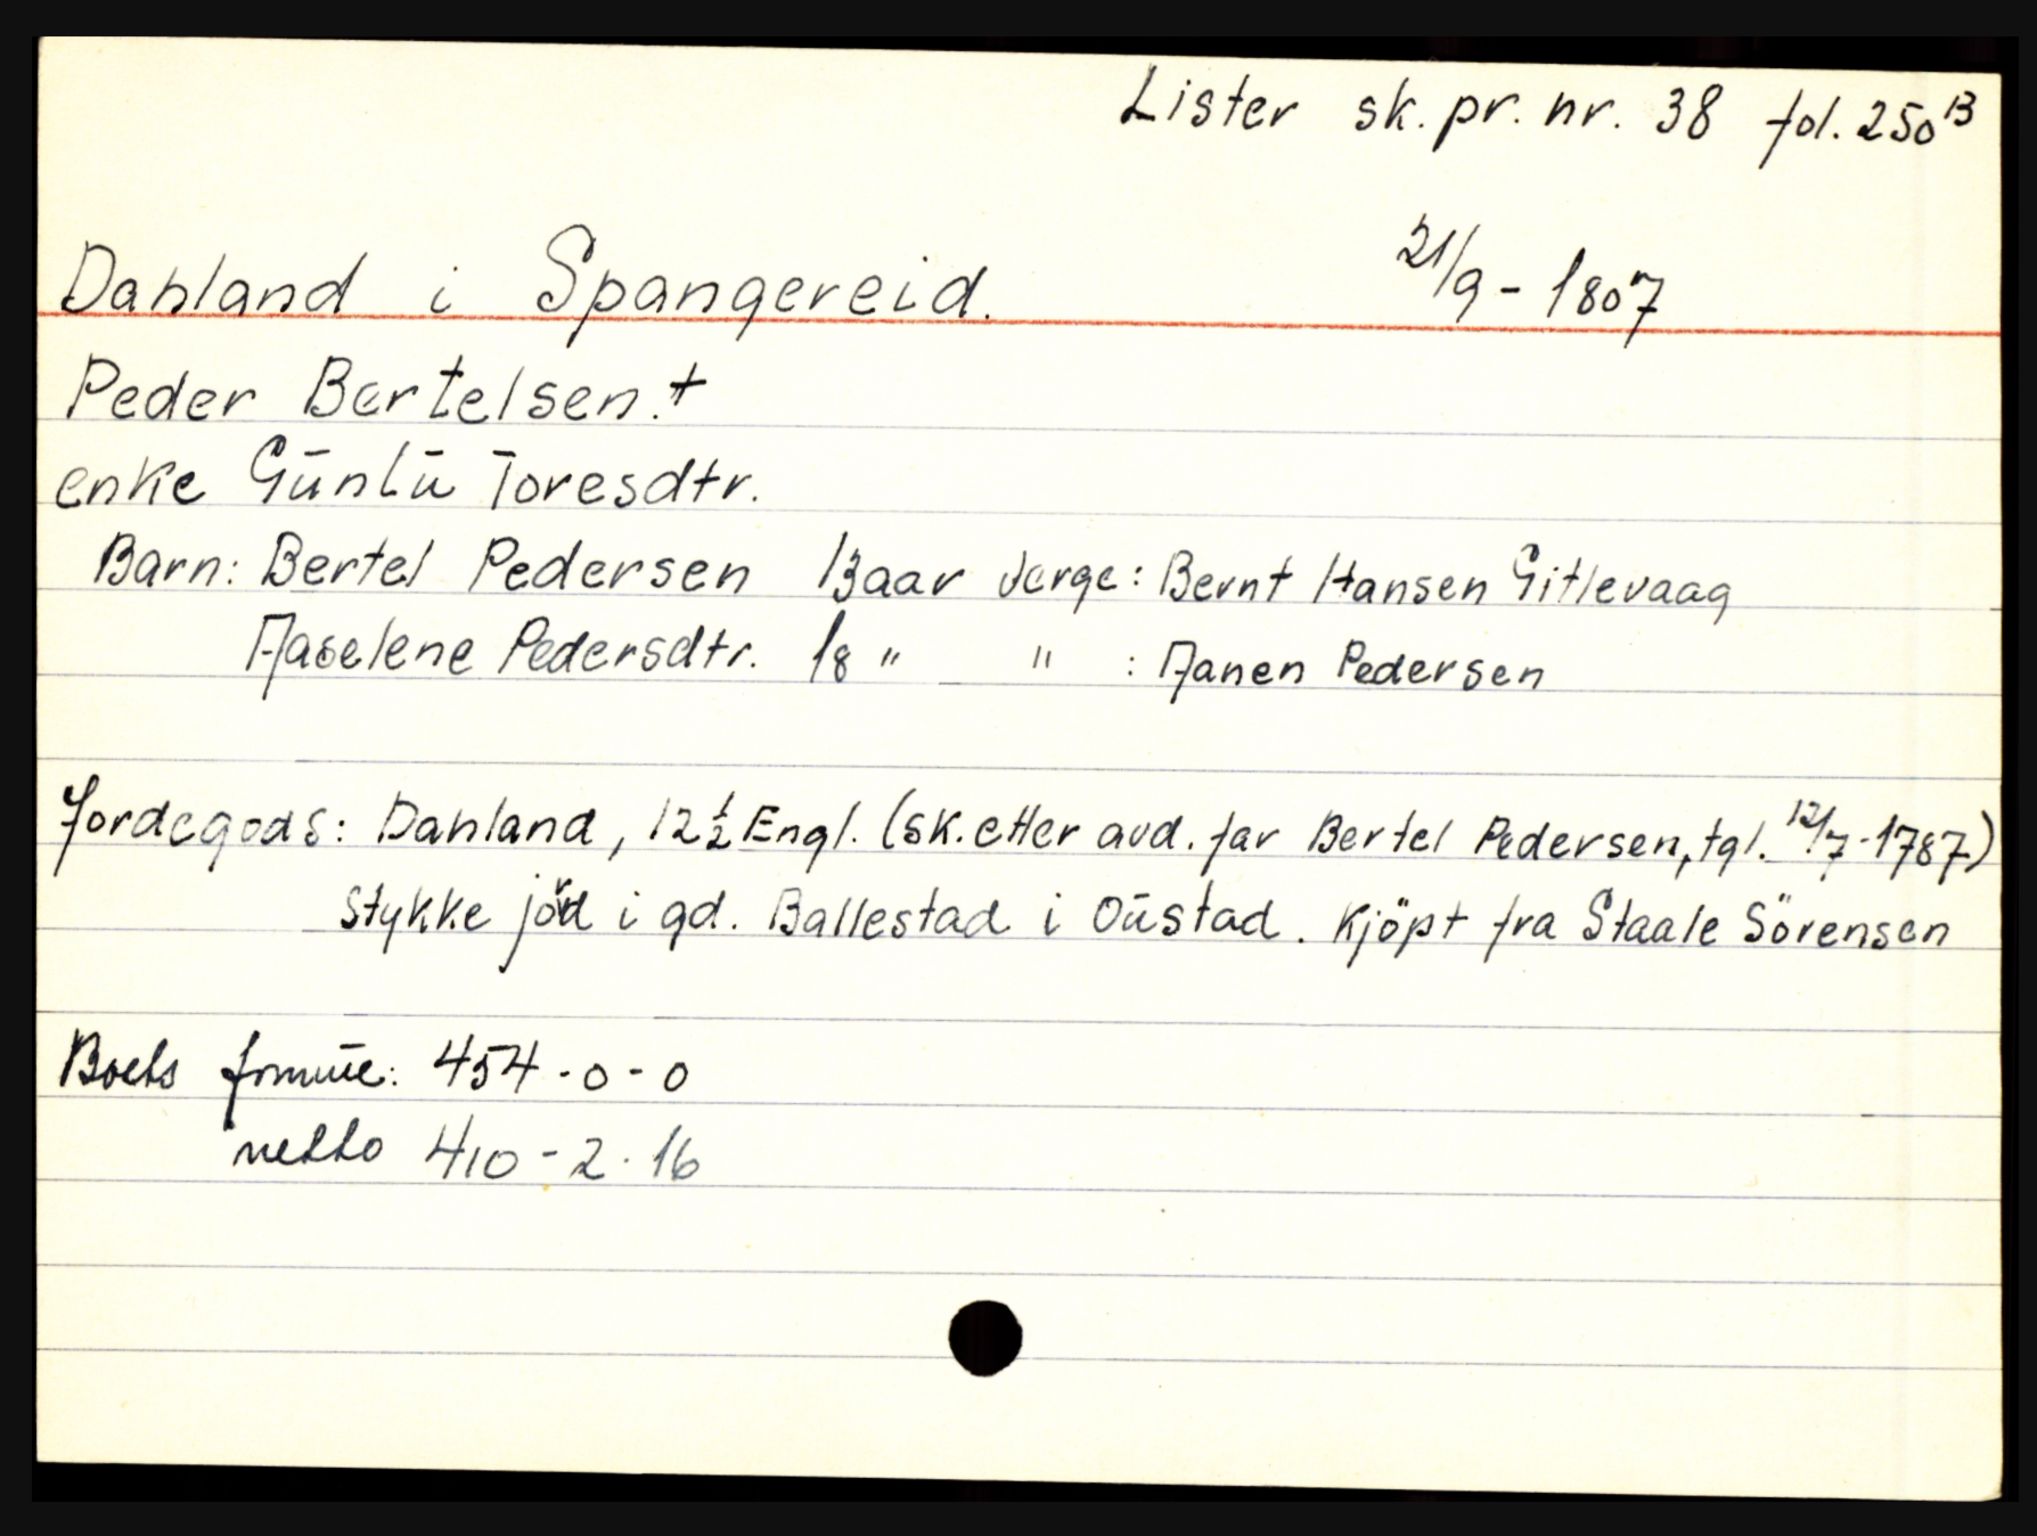 Lister sk. pr. nr. 38 fol. 250 B
Dahland i Spangereid. 21/9 - 1807
Peder Bertelsen. +
enke Gūnlū Toresdtr.
Barn: Bertel Pedersen 13 aar verge: Bernt Hansen Gitlevaag
Aaselene Pedersdtr. 18 " " : Aanen Pedersen
Jordegods: Dahland, 12 ½ Engl. (sk. etter avd. far Bertel Pedersen, tgl. 12/7-1787)
stykke jord i gd. Ballestad i Oūstad. Kjöpt fra Staale Sörensen
Boets formūe: 454 - 0 - 0
netto 410 - 2 - 16